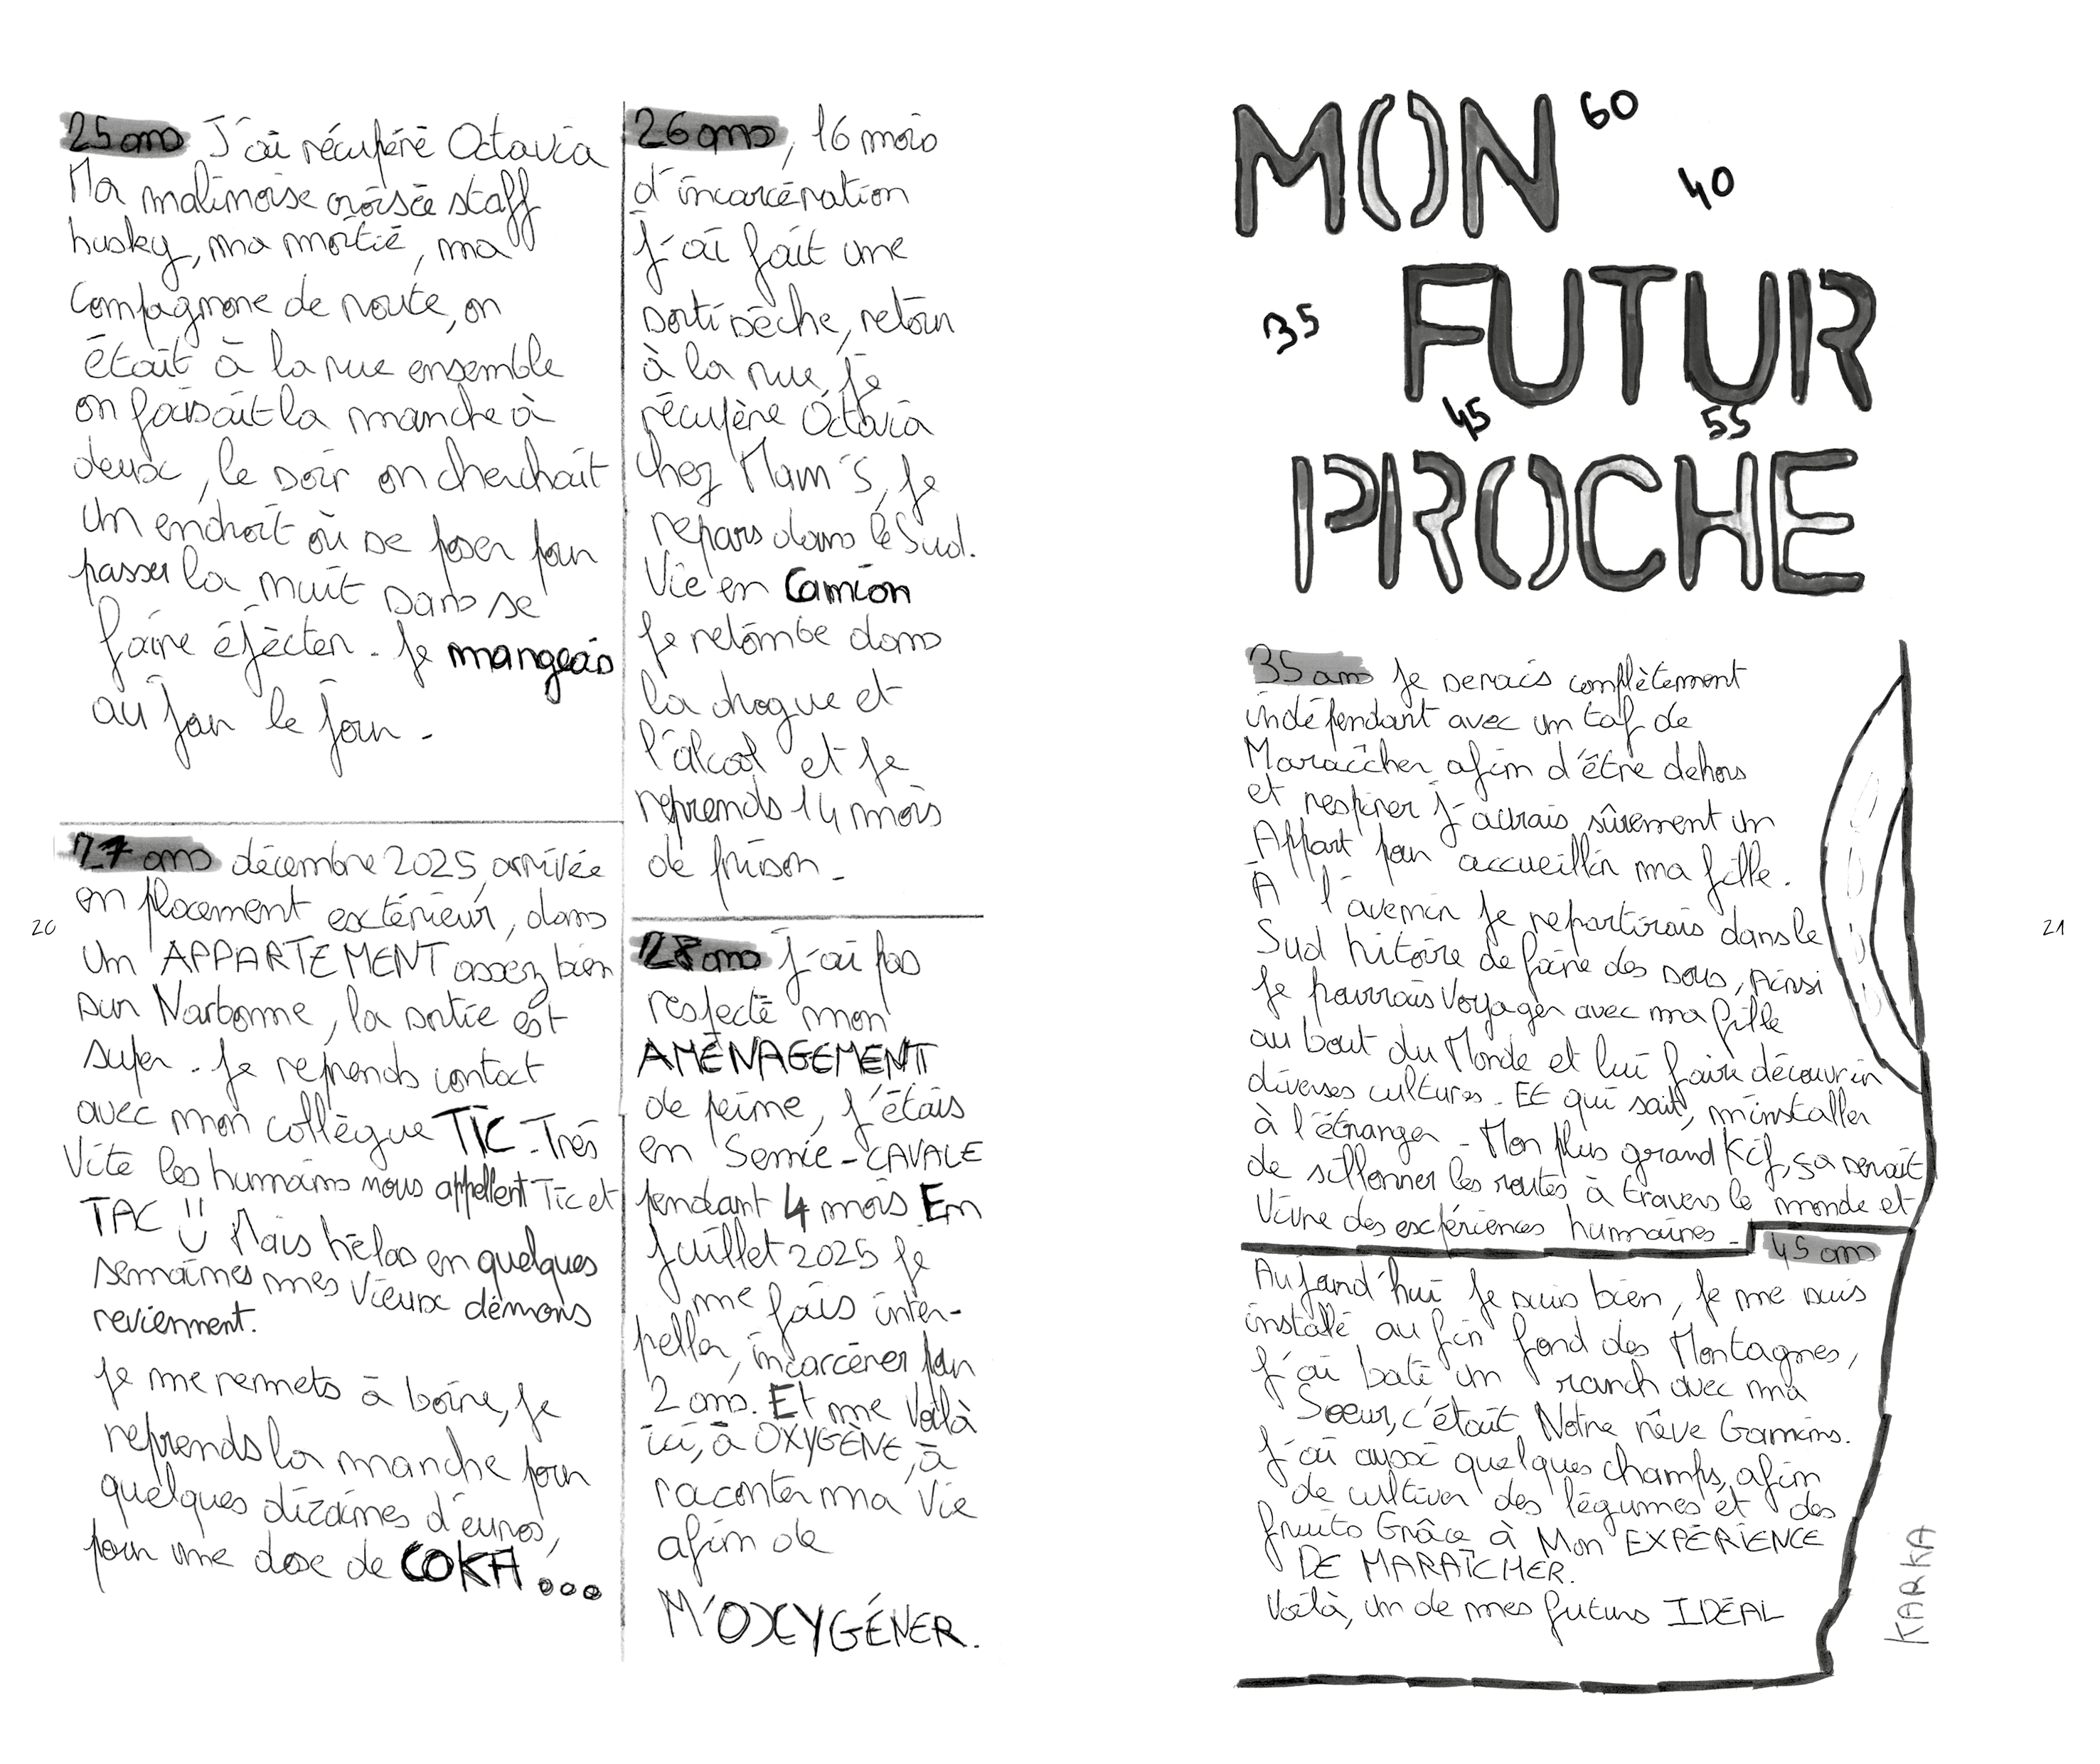 25 ans J'ai récupéré Octavia
Ma malinoise croisée staff
husky, ma moitié, ma
compagnone de route, on
était à la rue ensemble
on faisait la manche à
deux, le soir on cherchait
un endroit où se poser pour
passer la nuit sans se
faire éjécter. Je mangeais
au jour le jour.
26 ans, 16 mois
d'incarcération
J'ai fait une
sorti sèche, retour
à la rue, je
récupère Octavia
chez Mam's, je
repars dans le Sud.
Vie en Camion
Je retombe dans
la drogue et
l'alcool et je
reprends 14 mois
de prison.
27 ans décembre 2025, arrivée
en placement extérieur, dans
un APPARTEMENT assez bien
sur Narbonne, la sortie est
super. Je reprends contact
avec mon collègue TIC. Très
Vite les humains nous appellent Tic et
TAC !! Mais hélas en quelques
semaines mes Vieux démons
reviennent.
Je me remets à boire, je
reprends la manche pour
quelques dizaines d'euros,
pour une dose de COKA...
28 ans J'ai pas
respecté mon
AMÉNAGEMENT
de peine, J'étais
en Semie-CAVALE
pendant 4 mois En
Juillet 2025 je
me fais inter-
peller, incarcérer pour
2 ans. Et me Voilà
ici, à OXYGÈNE, à
raconter ma Vie
afin de
M'OXYGÉNER.
20
MON 60
40
35 FUTUR
45 55
PROCHE
35 ans Je serais complètement
indépendant avec un taf de
Maraîcher afin d'être dehors
et respirer j'aurais sûrement un
Appart pour accueillir ma fille.
À l'avenir je repartirais dans le
Sud hitoire de faire des sous, Ainsi
je pourrais Voyager avec ma fille
au bout du Monde et lui faire découvrir
diverses cultures. Et qui sait, m'installer
à l'étranger. Mon plus grand Kif, ça serait
de sillonner les routes à travers le monde et
Vivre des expériences humaines.
45 ans
Aujourd'hui Je suis bien, Je me suis
installé au fin fond des Montagnes,
J'ai bati un ranch avec ma
Soeur, c'était Notre rêve Gamins.
J'ai aussi quelques champs, afin
de cultiver des légumes et des
fruits Grâce à Mon EXPÉRIENCE
DE MARAÎCHER.
Voilà, un de mes futurs IDÉAL
KARKA
21